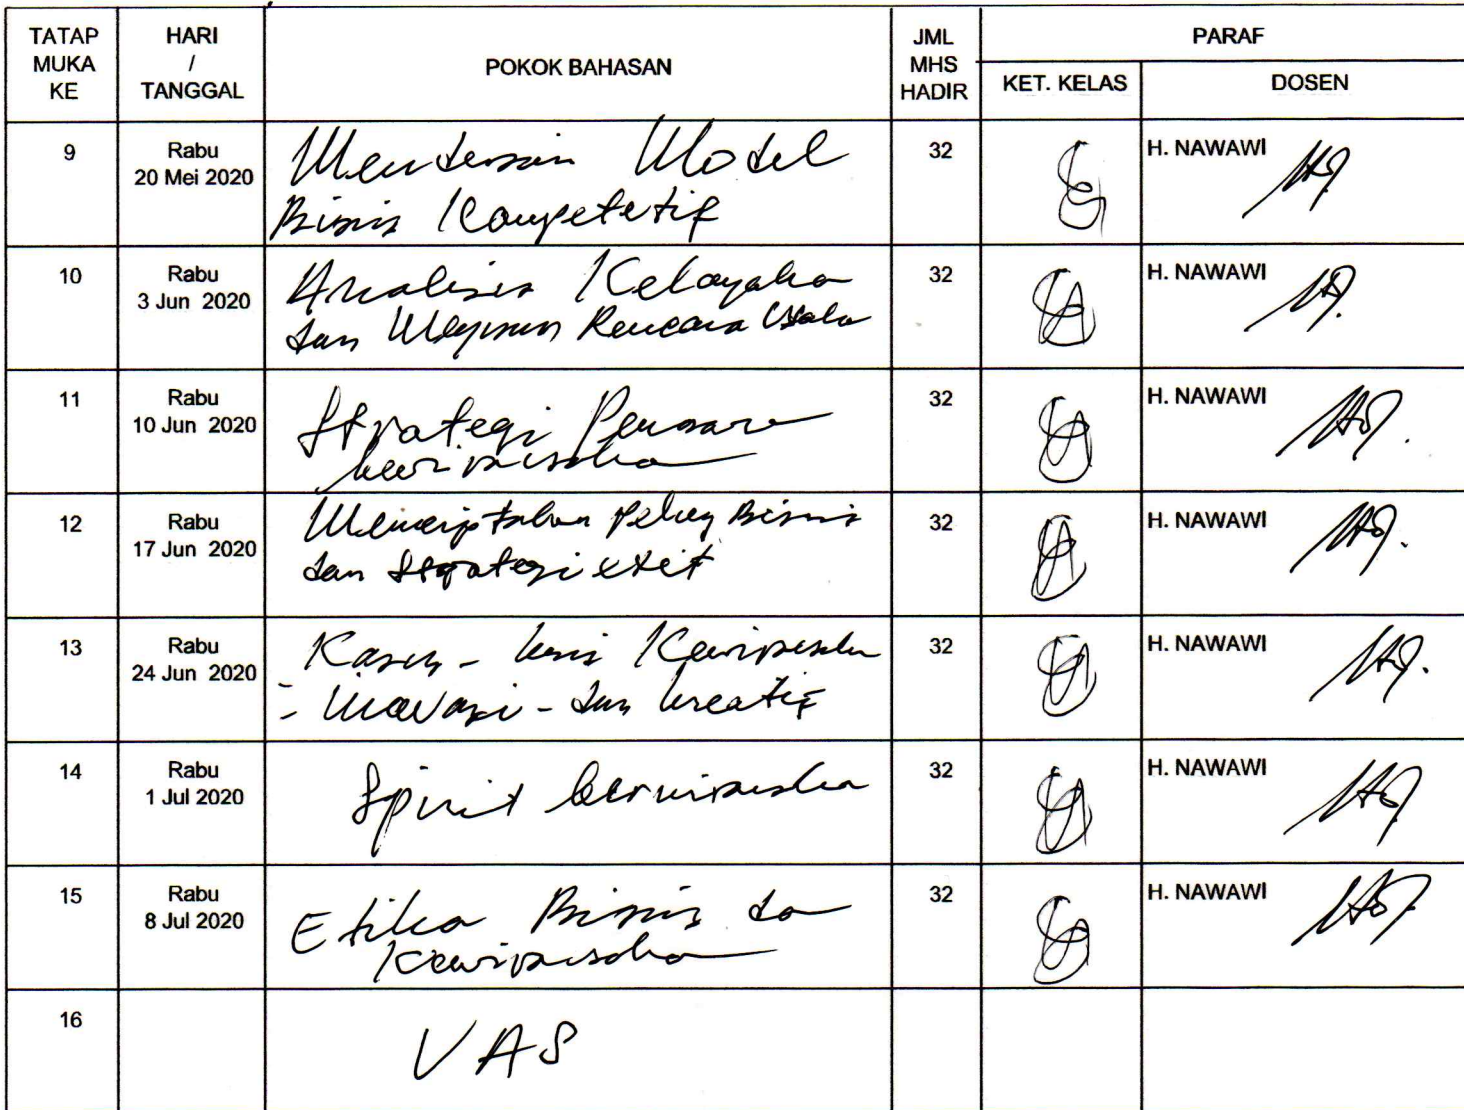 TATAP MUKA KE
HARI / TANGGAL
POKOK BAHASAN
JML MHS HADIR
PARAF
KET. KELAS
DOSEN
9
Rabu
20 Mei 2020
Model
Bisnis Kompetetif
32
H. NAWAWI
10
Rabu
3 Jun 2020
Analisis Kelayaka
dan Rencana Usaha
32
H. NAWAWI
11
Rabu
10 Jun 2020
Strategi
32
H. NAWAWI
12
Rabu
17 Jun 2020
Menciptakan Peluang Bisnis
dan Strategi exit
32
H. NAWAWI
13
Rabu
24 Jun 2020
Kasus -
- inovasi - dan kreatif
32
H. NAWAWI
14
Rabu
1 Jul 2020
Spirit berwirausaha
32
H. NAWAWI
15
Rabu
8 Jul 2020
Etika Bisnis da
Kewirausaha
32
H. NAWAWI
16
UAS